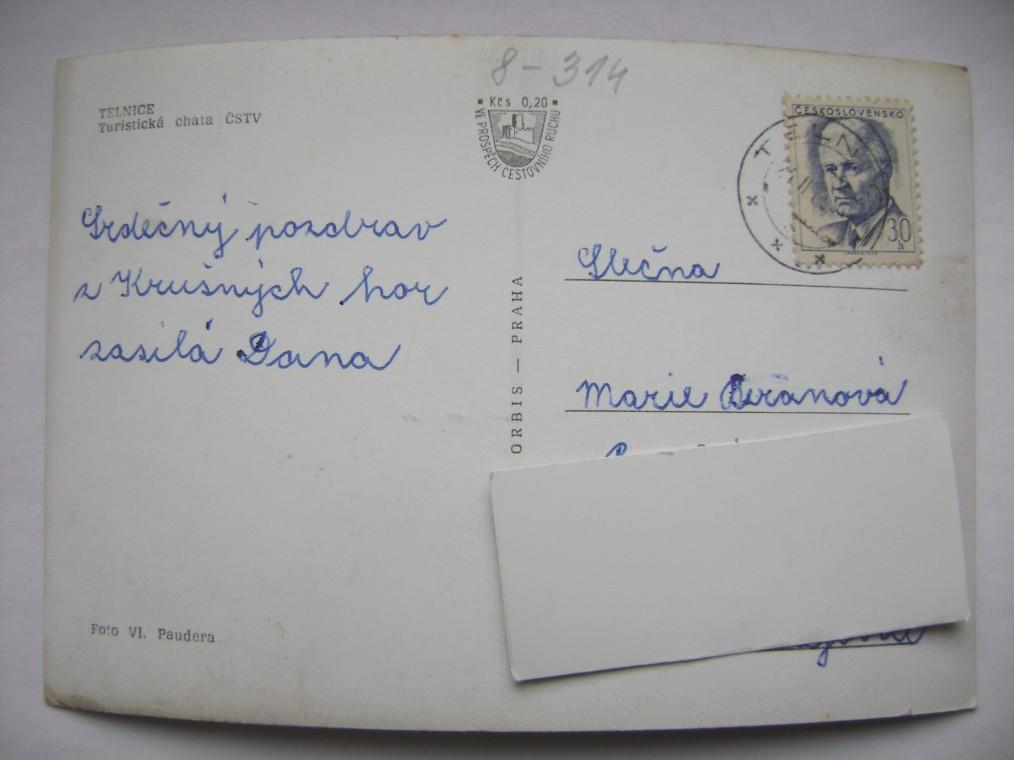 8-314
TELNICE
Turistická chata ČSTV
Kčs 0,20
VE PROSPĚCH CESTOVNÍHO RUCHU
ČESKOSLOVENSKO
30
h
Srdečný pozdrav
z Krušných hor
zasílá Dana
ORBIS — PRAHA
Slečna
Marie Beranová
Foto Vl. Paudera